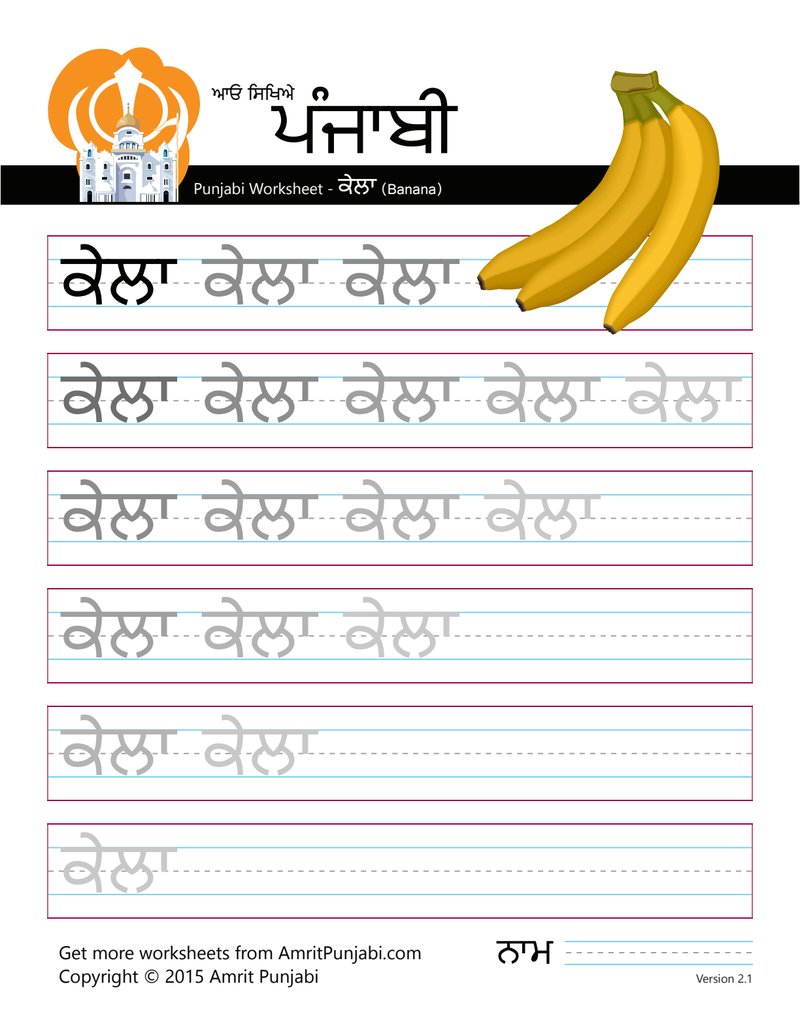 ਆਓ ਸਿਖਿਅੇ
ਪੰਜਾਬੀ
Punjabi Worksheet - ਕੇਲਾ (Banana)
ਕੇਲਾ ਕੇਲਾ ਕੇਲਾ
ਕੇਲਾ ਕੇਲਾ ਕੇਲਾ ਕੇਲਾ ਕੇਲਾ
ਕੇਲਾ ਕੇਲਾ ਕੇਲਾ ਕੇਲਾ
ਕੇਲਾ ਕੇਲਾ ਕੇਲਾ
ਕੇਲਾ ਕੇਲਾ
ਕੇਲਾ
Get more worksheets from AmritPunjabi.com
Copyright © 2015 Amrit Punjabi
ਨਾਮ
Version 2.1